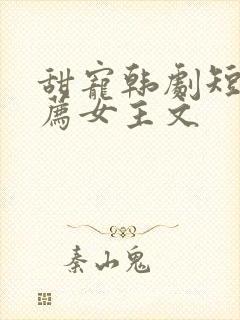 甜宠韩剧短
荐女主文
秦山鬼